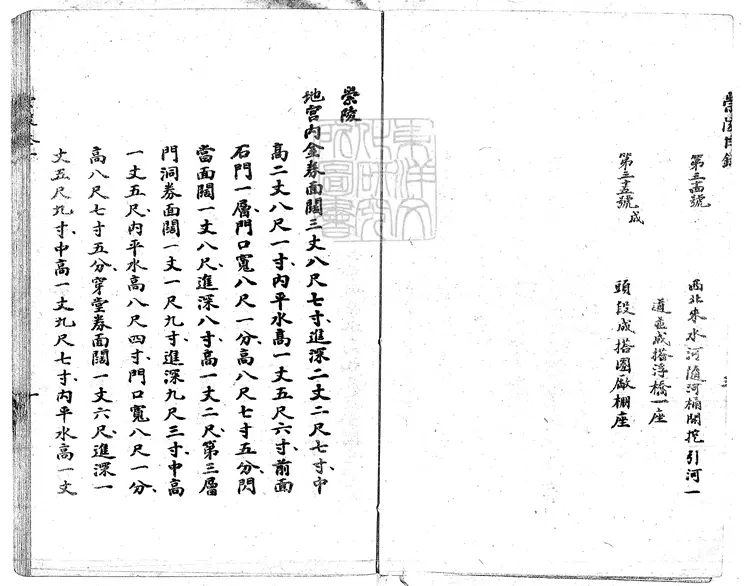 第三十四號
西北來水河隨河桶開挖引河一
道並成搭浮橋一座
第三十五號成
頭段成搭圈廠棚座
崇陵
地宮内金券面闊三丈八尺七寸、進深二丈二尺七寸、中
高二丈八尺一寸、内平水高一丈五尺六寸、前面
石門一層、門口寬八尺一分、高八尺七寸五分、閃
當面闊一丈八尺、進深八寸、高一丈二尺、第三層
門洞券面闊一丈一尺九寸、進深九尺三寸、中高
一丈五尺、内平水高八尺四寸、門口寬八尺一分、
高八尺七寸五分、穿堂券面闊一丈六尺、進深一
丈五尺九寸、中高一丈九尺七寸、内平水高一丈
一